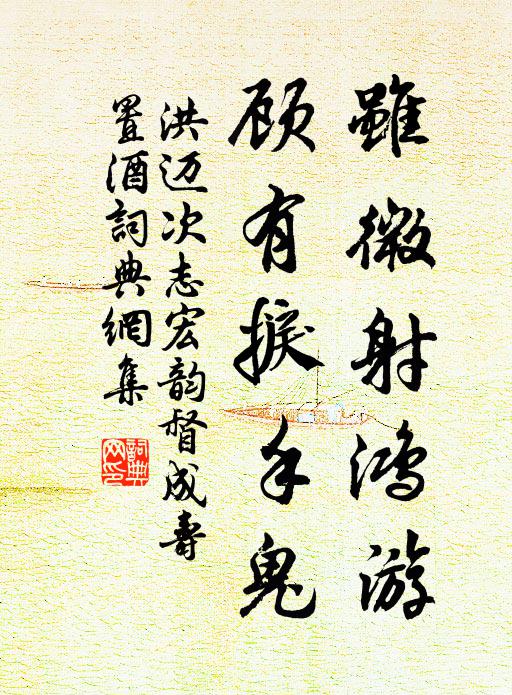 雖微射鸿游
顾有捩手鬼
洪迈次志宏韵督成壽
置酒詞典網集
詞典网印